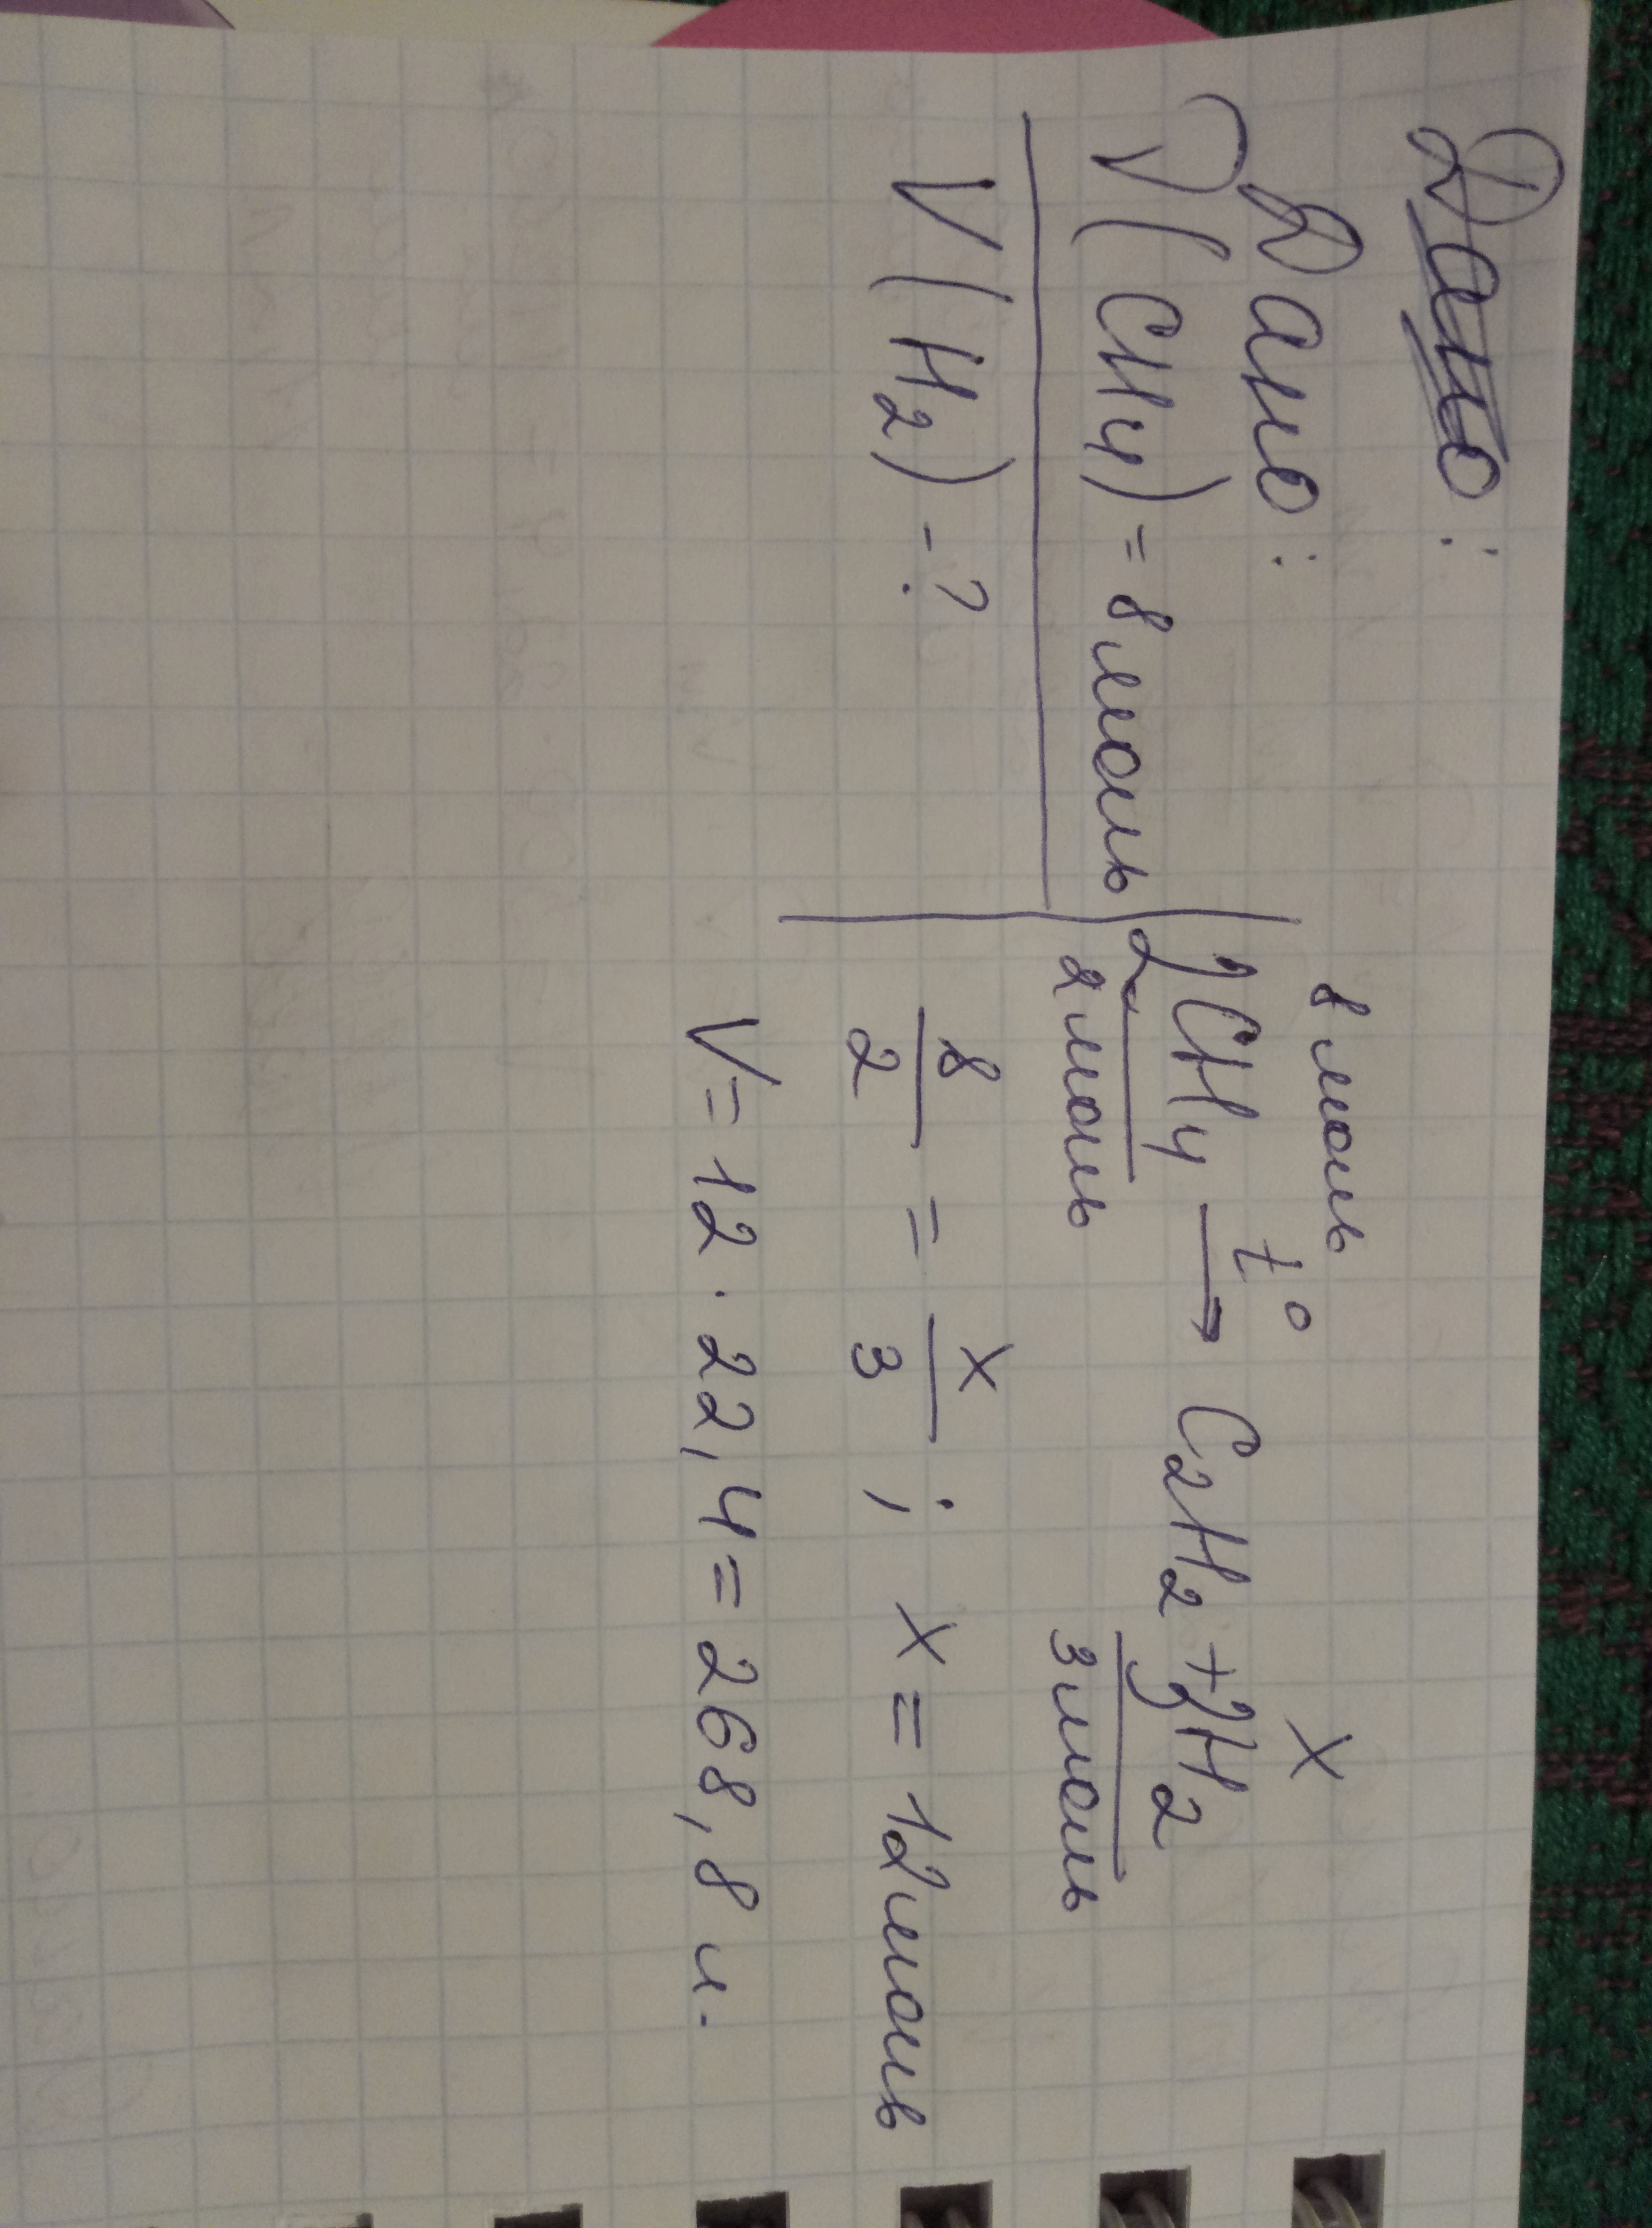 Дано:
Дано:
8 моль
x
ν(CH4) = 8 моль
2CH4 t° → C2H2 + 3H2
2 моль
3 моль
V(H2) - ?
8/2 = x/3 ; x = 12 моль
V = 12 · 22,4 = 268,8 л.